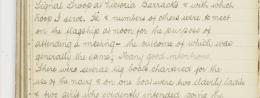 Signal Troop at Victoria Barracks & with which
troop I served. Sx & numbers of others were to meet
on the flagship at noon for the purposes of
attending a meeting - the outcome of which was
generally the same, Many good intentions.
There were several big boats chartered for the
use of the many & on one boat were two elderly ladies
& two girls who evidently intended going the